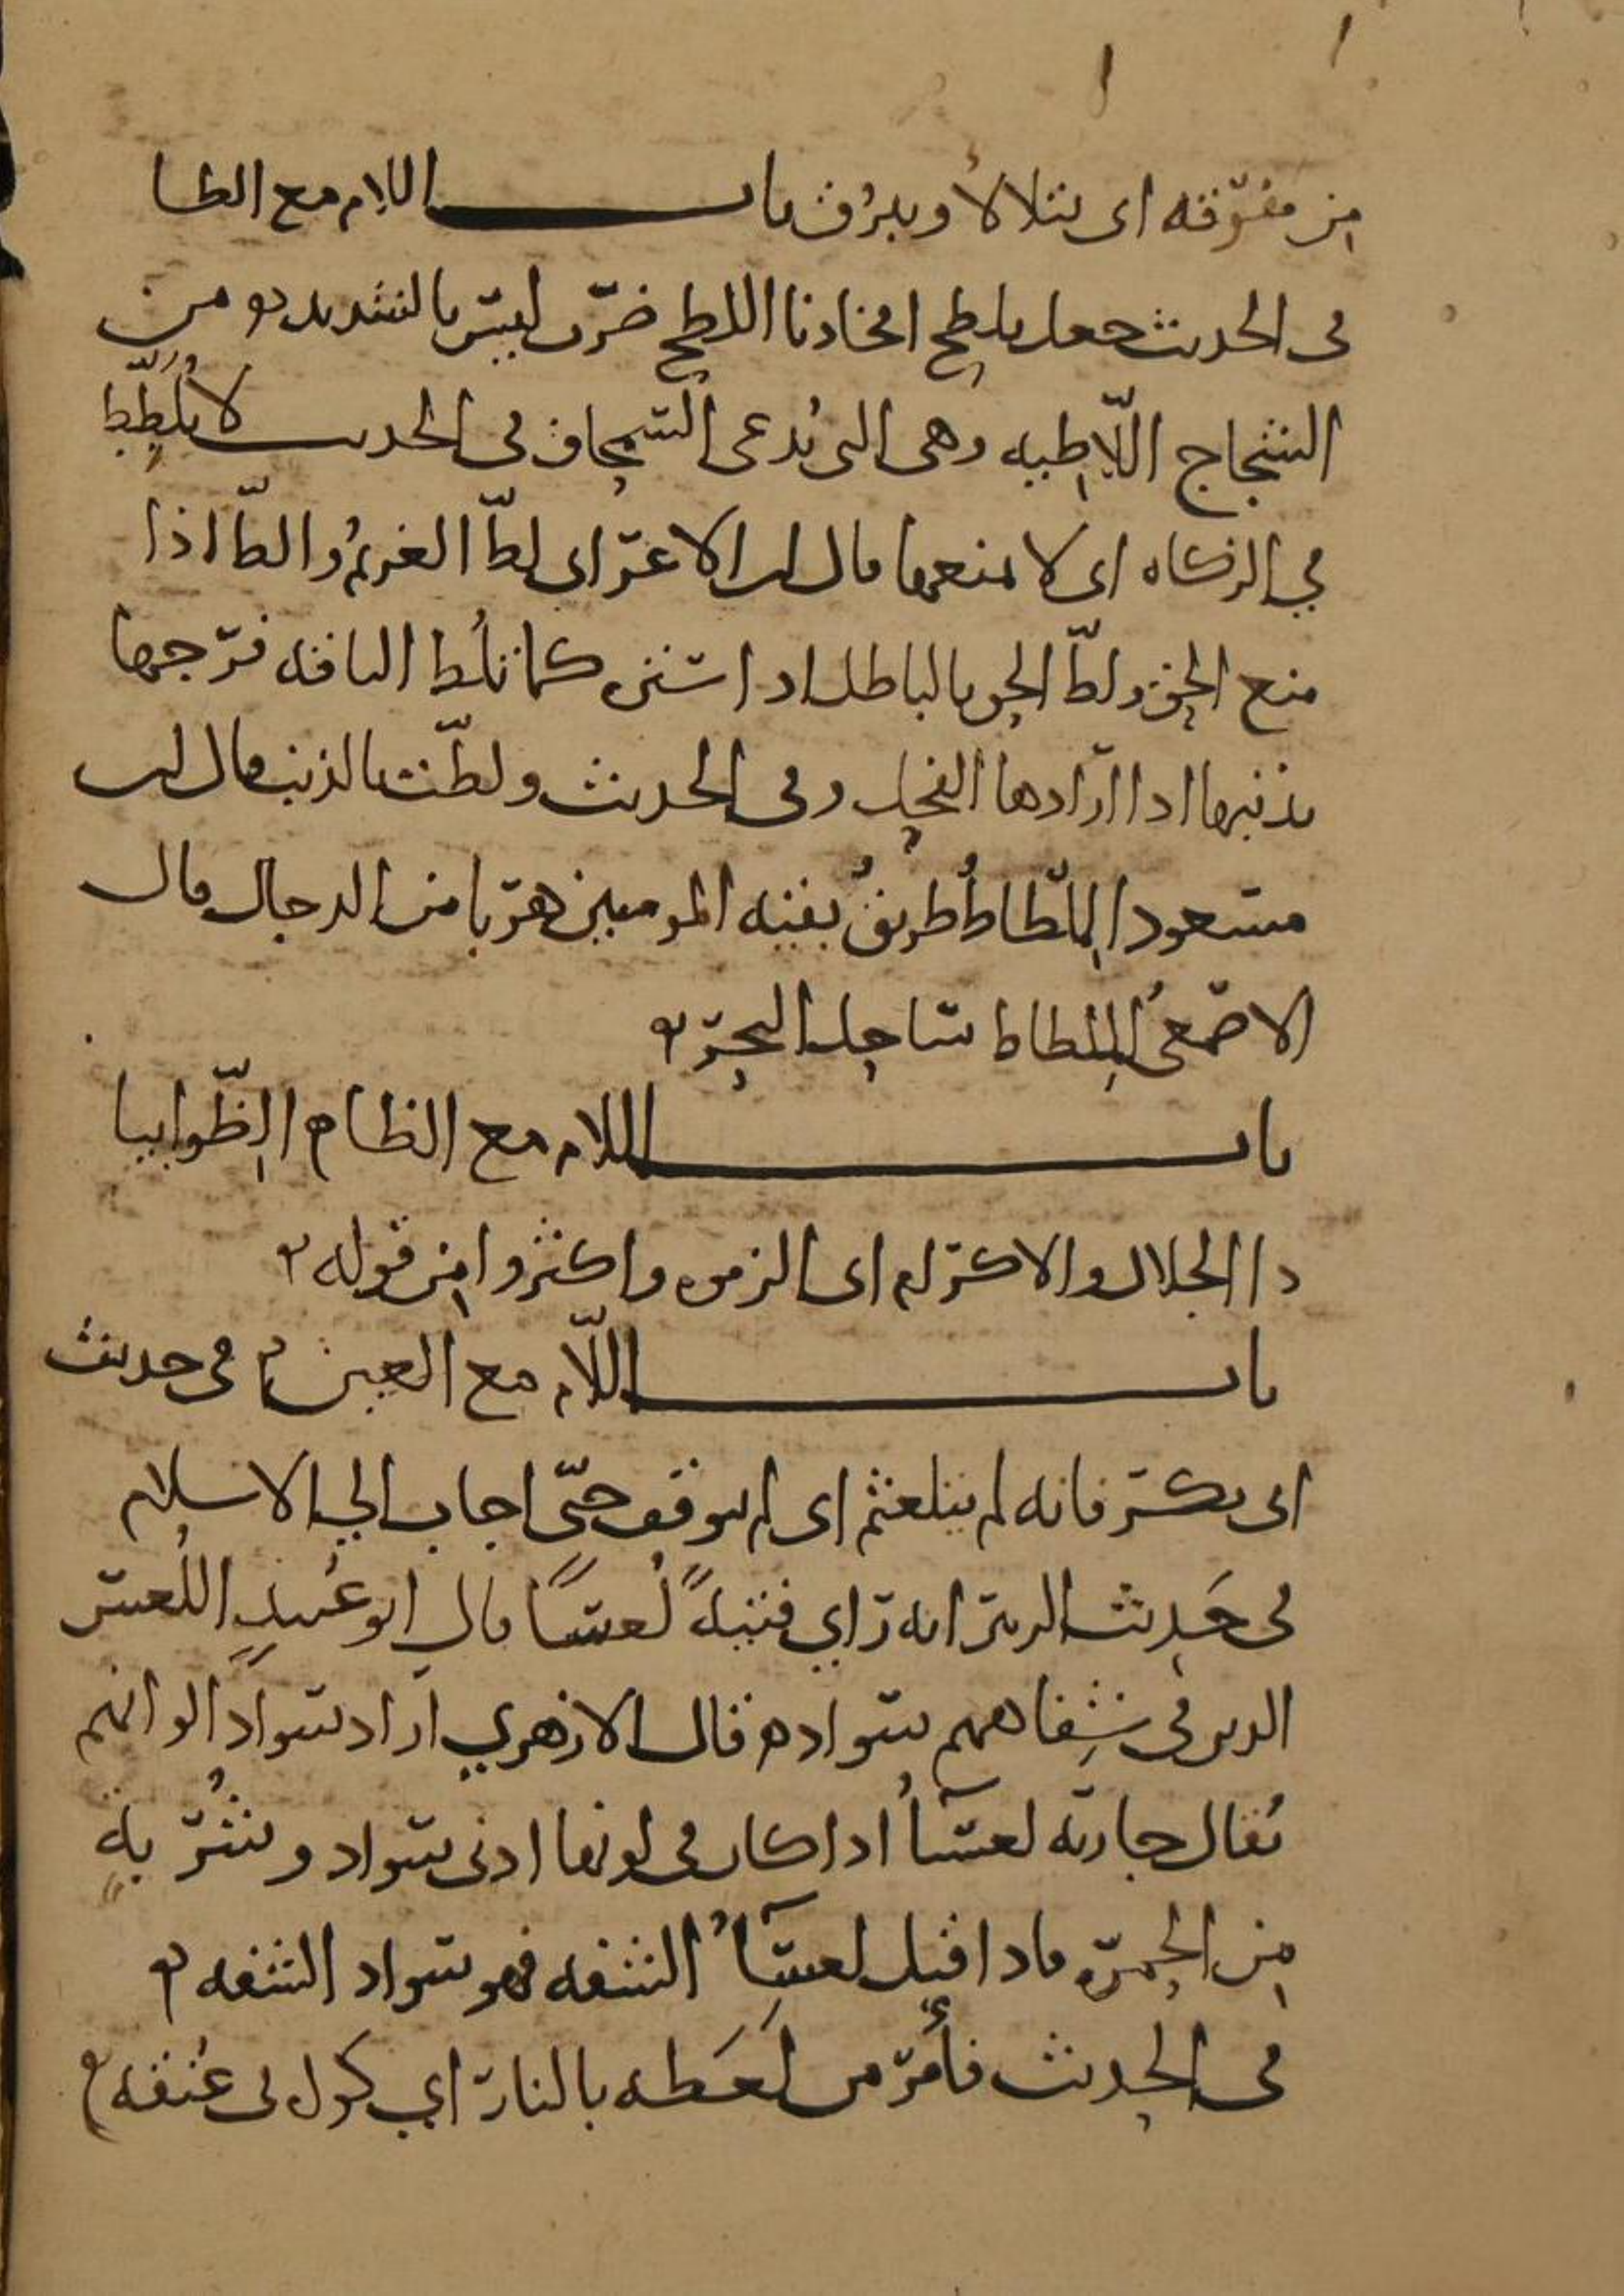 من مفرقه اى يتلالأ ويبرق باب اللام مع الطا
فى الحديث جعل يلطح افخاذنا اللطح ضرب ليس بالشديد ومن
الشجاج اللّاطيه وهى التى تُدعى السمحاق فى الحديث لا تُلَطِّط
في الزكاه اى لا تمنعها قال ابن الاعرابى لطّ الغريمُ والطّ اذا
منع الحق ولطّ الحق بالباطل اذا ستره كما تلُط الناقه فرجها
بذنبها اذا ارادها الفحل وفى الحديث ولطّت بالذنب قال ابن
مسعود الملطاط طريقُ بقيّه المومنين هربا من الدجال قال
الاصمعىُ الملطاط ساحل البحر
باب اللام مع الظا الِظّوا بيا
ذا الجلال والاكرام اى الزموه واكثروا من قوله
باب اللّام مع العين فى حديث
ابى بكر فانه لم يتلعثم اى لم يتوقف حتّى اجاب الى الاسلام
فى حَديث الزبير انه راي فتيةً لُعسًا قال ابو عُبيدٍ اللُعس
الذين فى شِفاههم سواده قال الازهري اراد سوادَ الوانهم
يُقال جاريه لعسآءُ اذا كان فى لونها ادنى سواد وشُرّبة
من الحمره فاذا قيل لعسآءُ الشفه فهو سواد الشفه
فى الحديث فأمر من لَعَطه بالنار اي كواه فى عُنقه